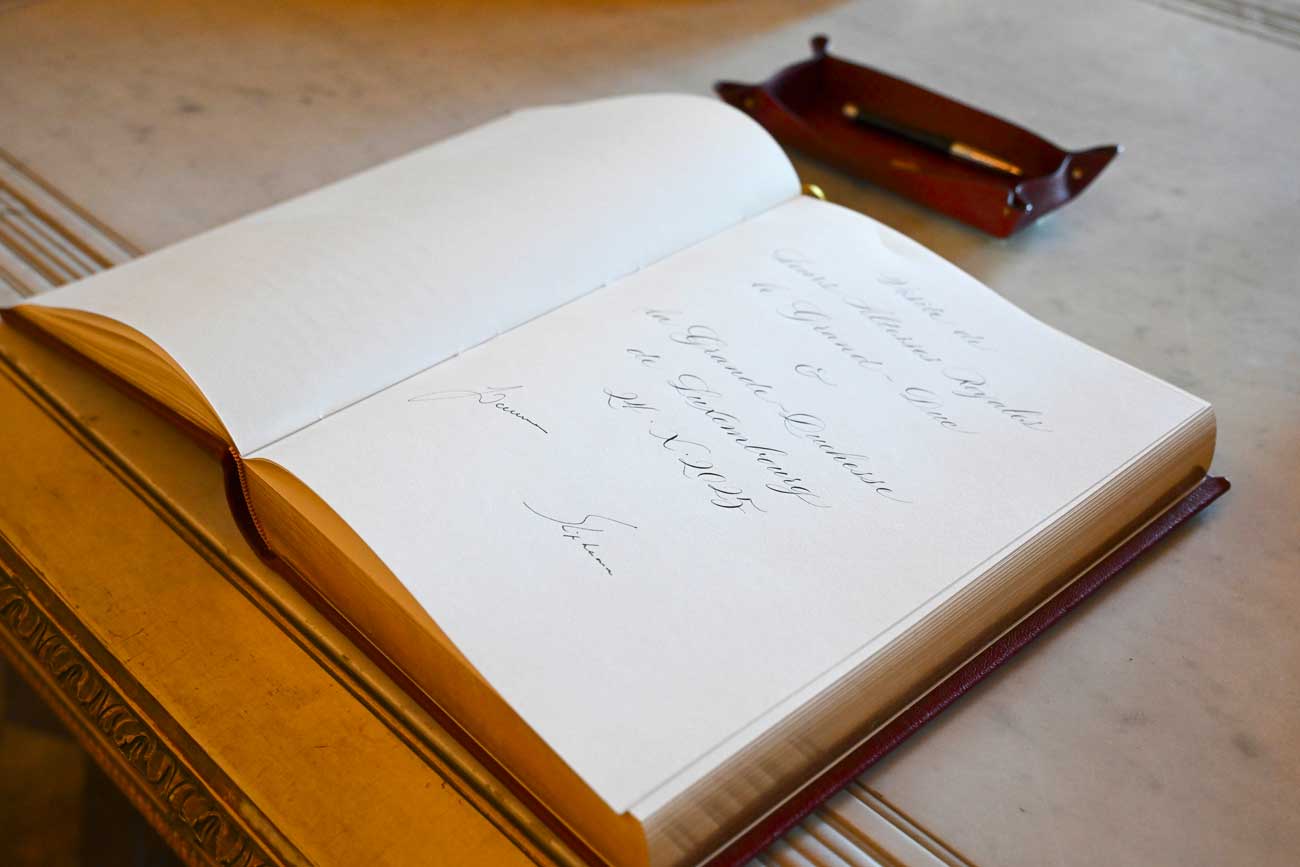 Visite de
Leurs Altesses Royales
le Grand-Duc
&
la Grande-Duchesse
de Luxembourg
21. X. 2025
Stéphanie